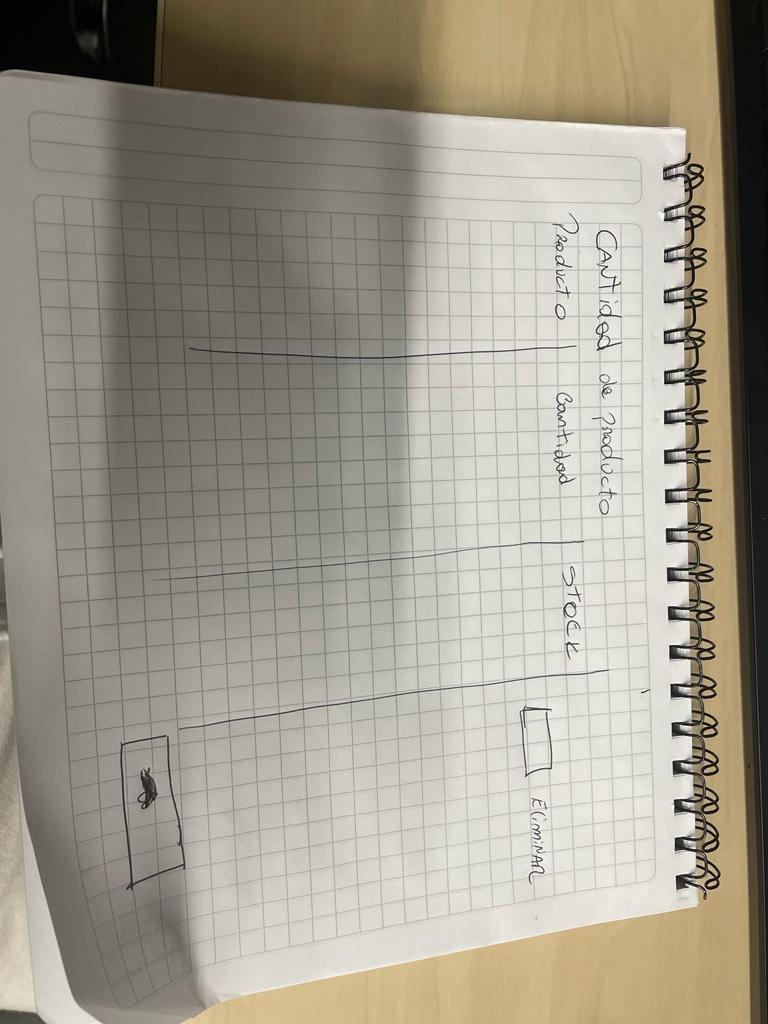 Cantidad de producto
Producto
Cantidad
Stock
Eliminar